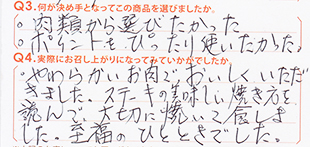 Q3.何が決め手となってこの商品を選びましたか。
○肉類から選びたかった
○ポイントをぴったり使いたかった。
Q4.実際にお召し上がりになってみていかがでしたか。
やわらかいお肉でおいしくいただ
きました。ステーキの美味しい焼き方を
読んで、大切に焼いて食しまし
た。至福のひとときでした。